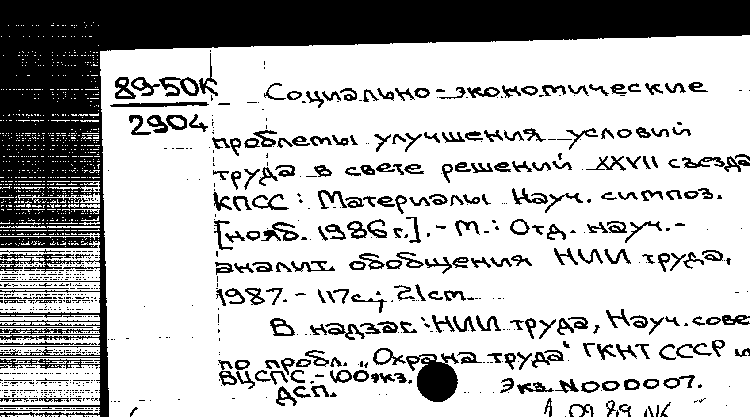 89-50К
2904
Социально-экономические
проблемы улучшения условий
труда в свете решений XXVII съезда
КПСС: Материалы Науч. симпоз.
[нояб. 1986 г.]. - М.: Отд. науч.-
аналит. обобщения НИИ труда,
1987. - 117с.; 21см.
В надзаг.: НИИ труда, Науч. сове
по пробл. "Охрана труда" ГКНТ СССР и
ВЦСПС. - 100экз.
ДСП.
Экз. N000007.